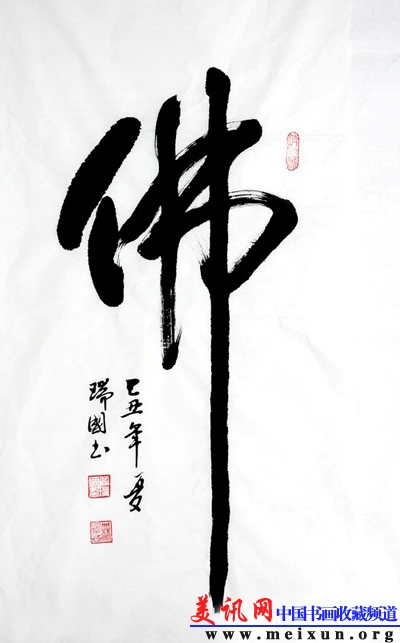 佛
己丑年夏
瑞國书
美讯网 中国书画收藏频道
www.meixun.org